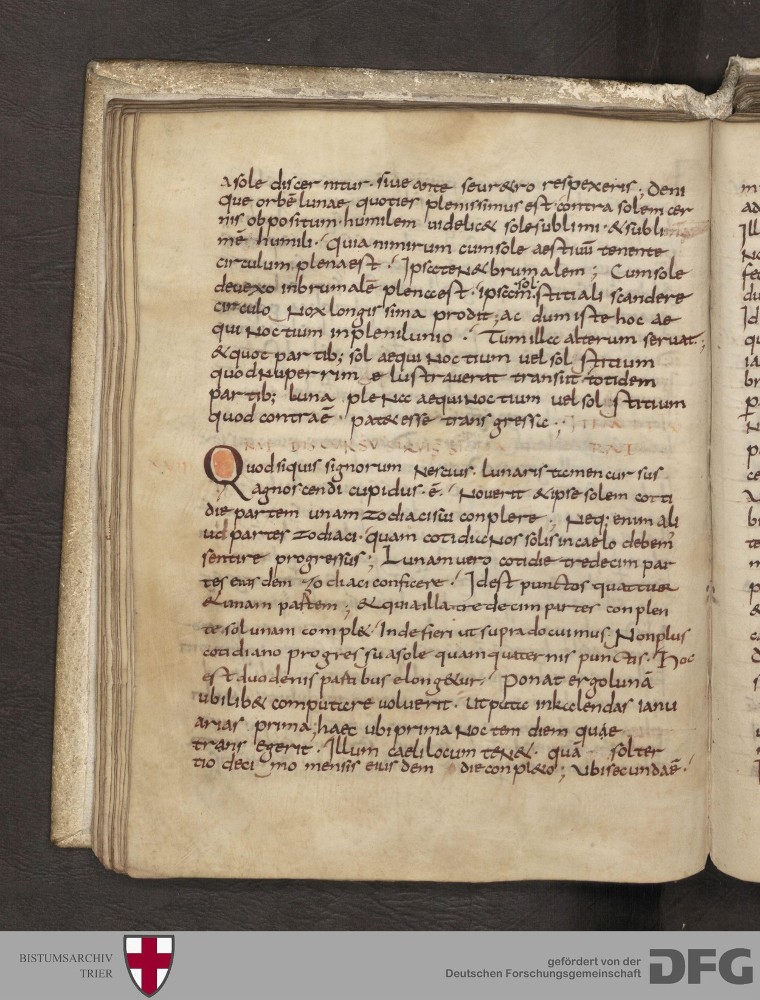 a sole discernitur. siue ante seu retro respexeris; deni
que orbē lunae quoties plenissimus est. contra solem cer
nis obpositum. humilem uidelic& sole sublimi. & subli
mē humili. quia nimirum cum sole aestiuū tenente
circulum plena est. Ipsa ten& brumalem; Cum sole
deuexo in brumalē plena est. ipsa cm̄ solstitiali scandere
circulo Nox longissima prodit; ac dum iste hoc ae
qui Noctium in plenilunio. Tum illa alterum seruat;
& quot partib; sol aequi Noctium uel sol stitium
quod Nuperrim e lustrauerat transiit totidem
partib; luna ple Na aequi Noctium uel sol stitium
quod contra ē. pat& esse transgressa;
Quod si quis signorum Nescius. lunaris tamen cursus
agnoscendi cupidus. ē. Nouerit & ipse solem coti
die partem unam zodiaci sui conplere; Neq; enim ali
ud partes zodiaci. quam cotidianos solis in caelo debem̄
sentire progressus; Lunam uero cotidie tredecim par
tes eiusdem zodiaci conficere. Id est punctos quattuor
& unam partem; & quia illa tredecim partes conplen
te sol unam compl&. Inde fieri ut supra docuimus. Non plus
cotidiano progressu a sole quam quaternis punctis. Hoc
est duodenis partibus elong&ur. Ponat ergo lunā
ubilib& computare uoluerit. Ut puta in kalendas ianu
arias prima; haec ubi prima Noctem diem quae
transegerit. Illum caeli locum ten&. quā sol ter
tio decimo mensis eiusdem die conpl&o; Ubi secunda ē.
BISTUMSARCHIV
TRIER
gefördert von der
Deutschen Forschungsgemeinschaft
DFG